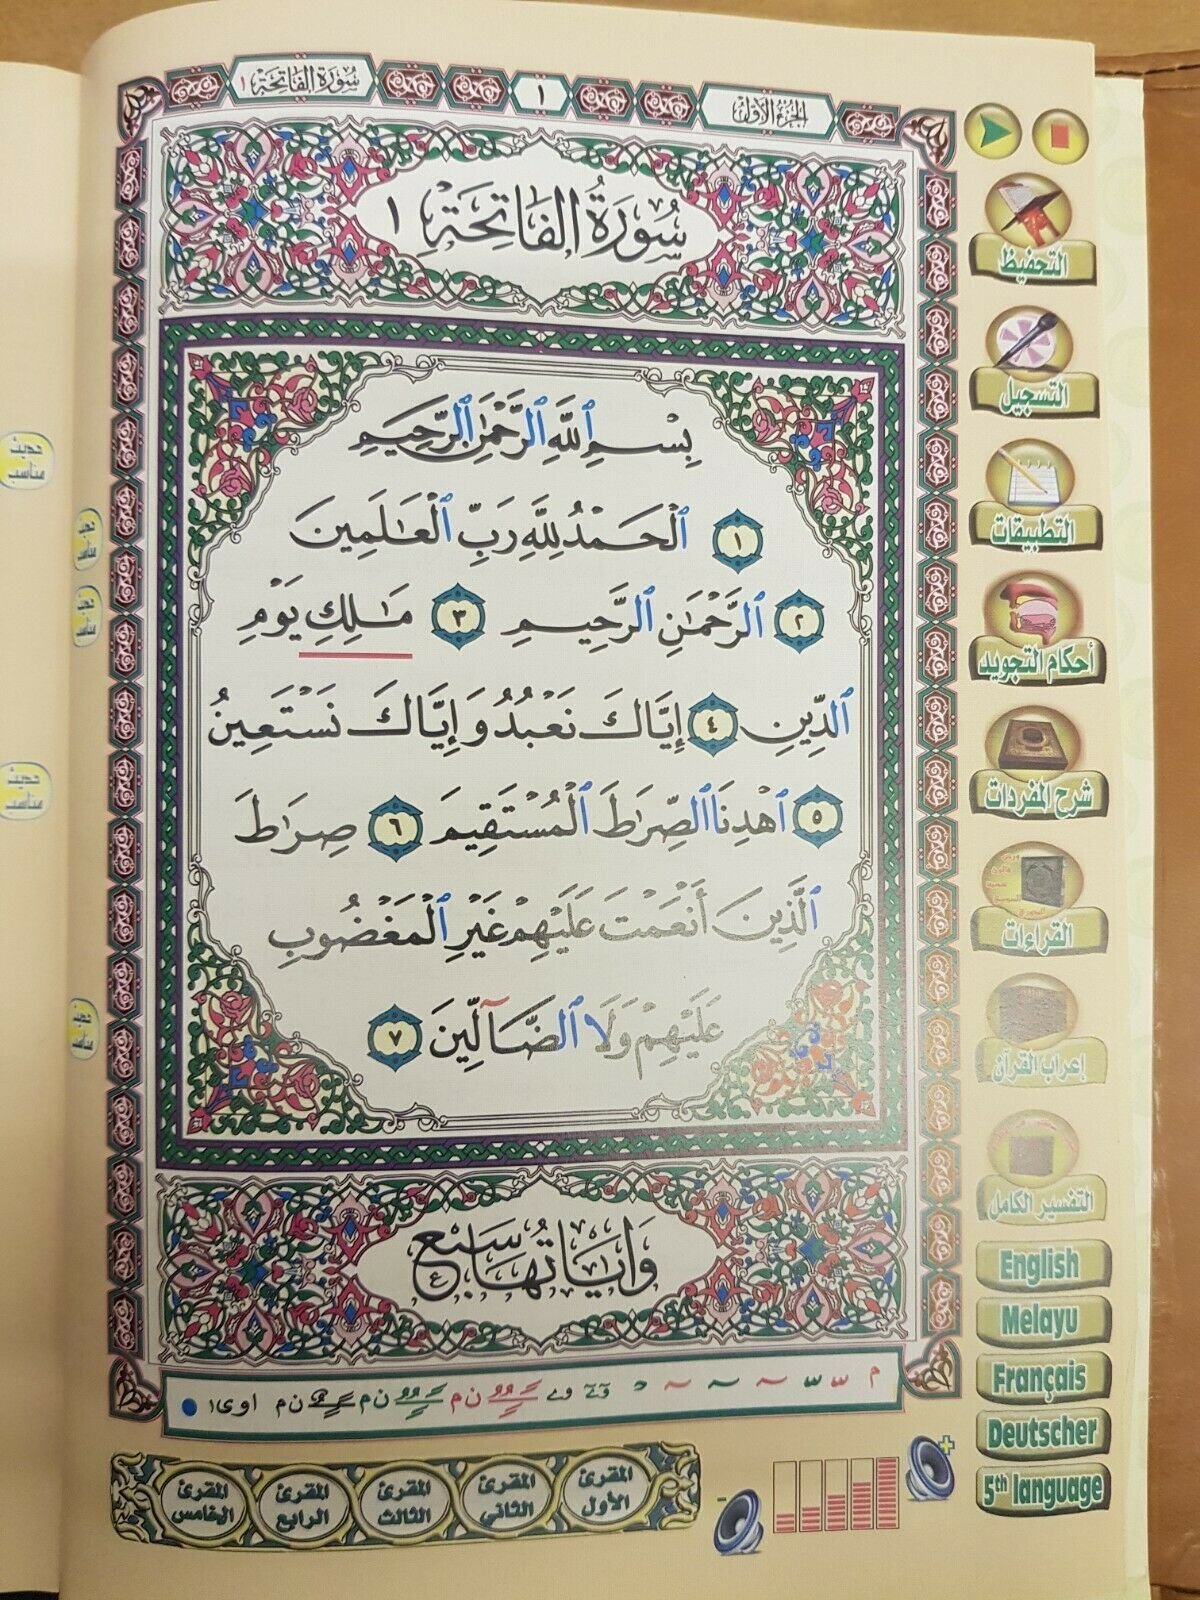 الجزء الأول
١
سورة الفاتحة ١
سُورَةُ الفَاتِحَة ١
بِسْمِ ٱللَّهِ ٱلرَّحْمَٰنِ ٱلرَّحِيمِ
١ ٱلْحَمْدُ لِلَّهِ رَبِّ ٱلْعَٰلَمِينَ
٢ ٱلرَّحْمَٰنِ ٱلرَّحِيمِ ٣ مَٰلِكِ يَوْمِ
ٱلدِّينِ ٤ إِيَّاكَ نَعْبُدُ وَإِيَّاكَ نَسْتَعِينُ
٥ ٱهْدِنَا ٱلصِّرَٰطَ ٱلْمُسْتَقِيمَ ٦ صِرَٰطَ
ٱلَّذِينَ أَنْعَمْتَ عَلَيْهِمْ غَيْرِ ٱلْمَغْضُوبِ
عَلَيْهِمْ وَلَا ٱلضَّآلِّينَ ٧
وَآيَاتُهَا سَبْع
التحفيظ
التسجيل
التطبيقات
أحكام التجويد
شرح المفردات
القراءات
إعراب القرآن
التفسير الكامل
English
Melayu
Français
Deutscher
5th language
المقرئ الأول
المقرئ الثاني
المقرئ الثالث
المقرئ الرابع
المقرئ الخامس
+
-
حديث
مناسب
حديث
مناسب
حديث
مناسب
حديث
مناسب
حديث
مناسب